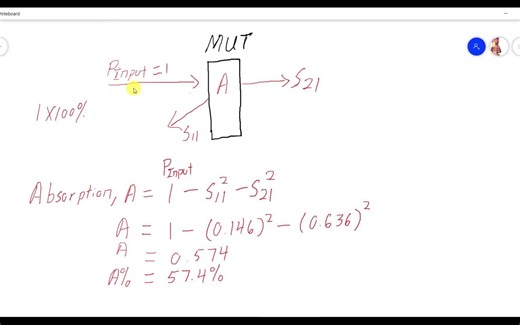 Whiteboard
MUT
P_Input = 1
A
S21
1 X 100%
S11
P_Input
Absorption, A = 1 - S11² - S21²
A = 1 - (0.146)² - (0.636)²
A = 0.574
A% = 57.4%